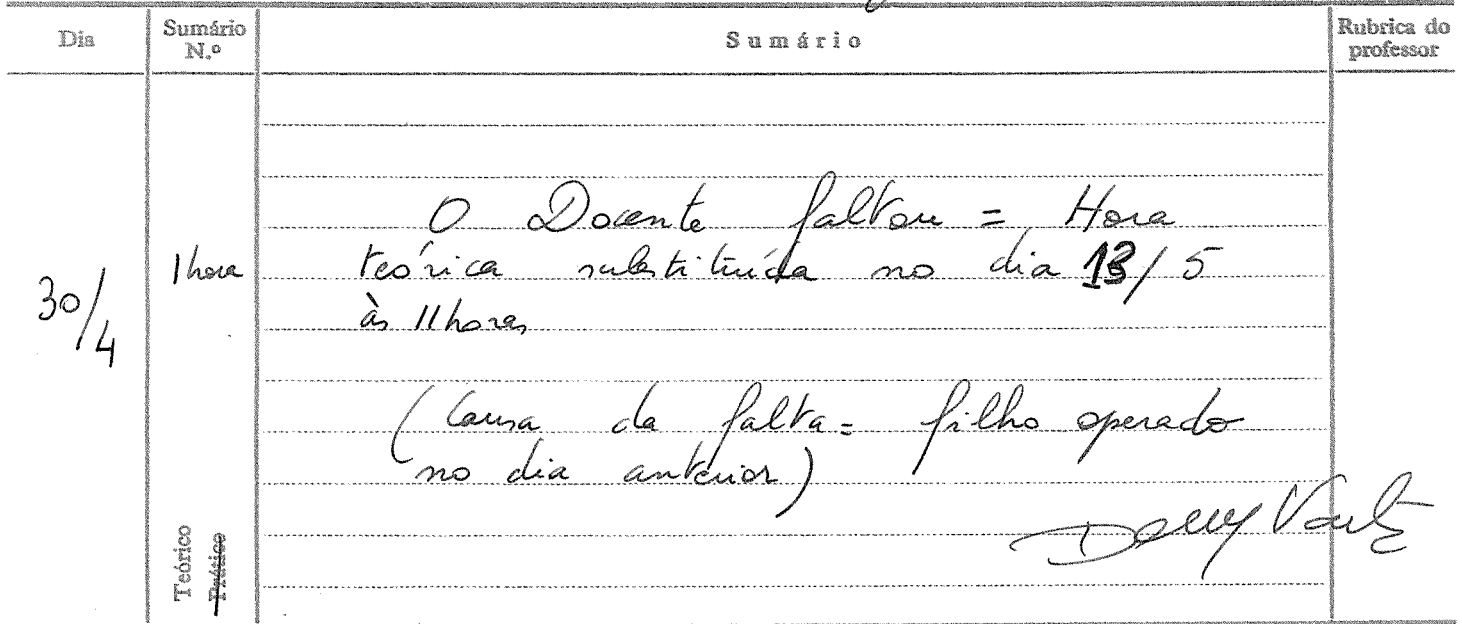 Dia
Sumário N.º
Sumário
Rubrica do professor
30/4
1 hora
O Docente faltou = Hora
teórica substituída no dia 13/5
às 11 horas
(Causa da falta = filho operado
no dia anterior)
Teórico
Prático